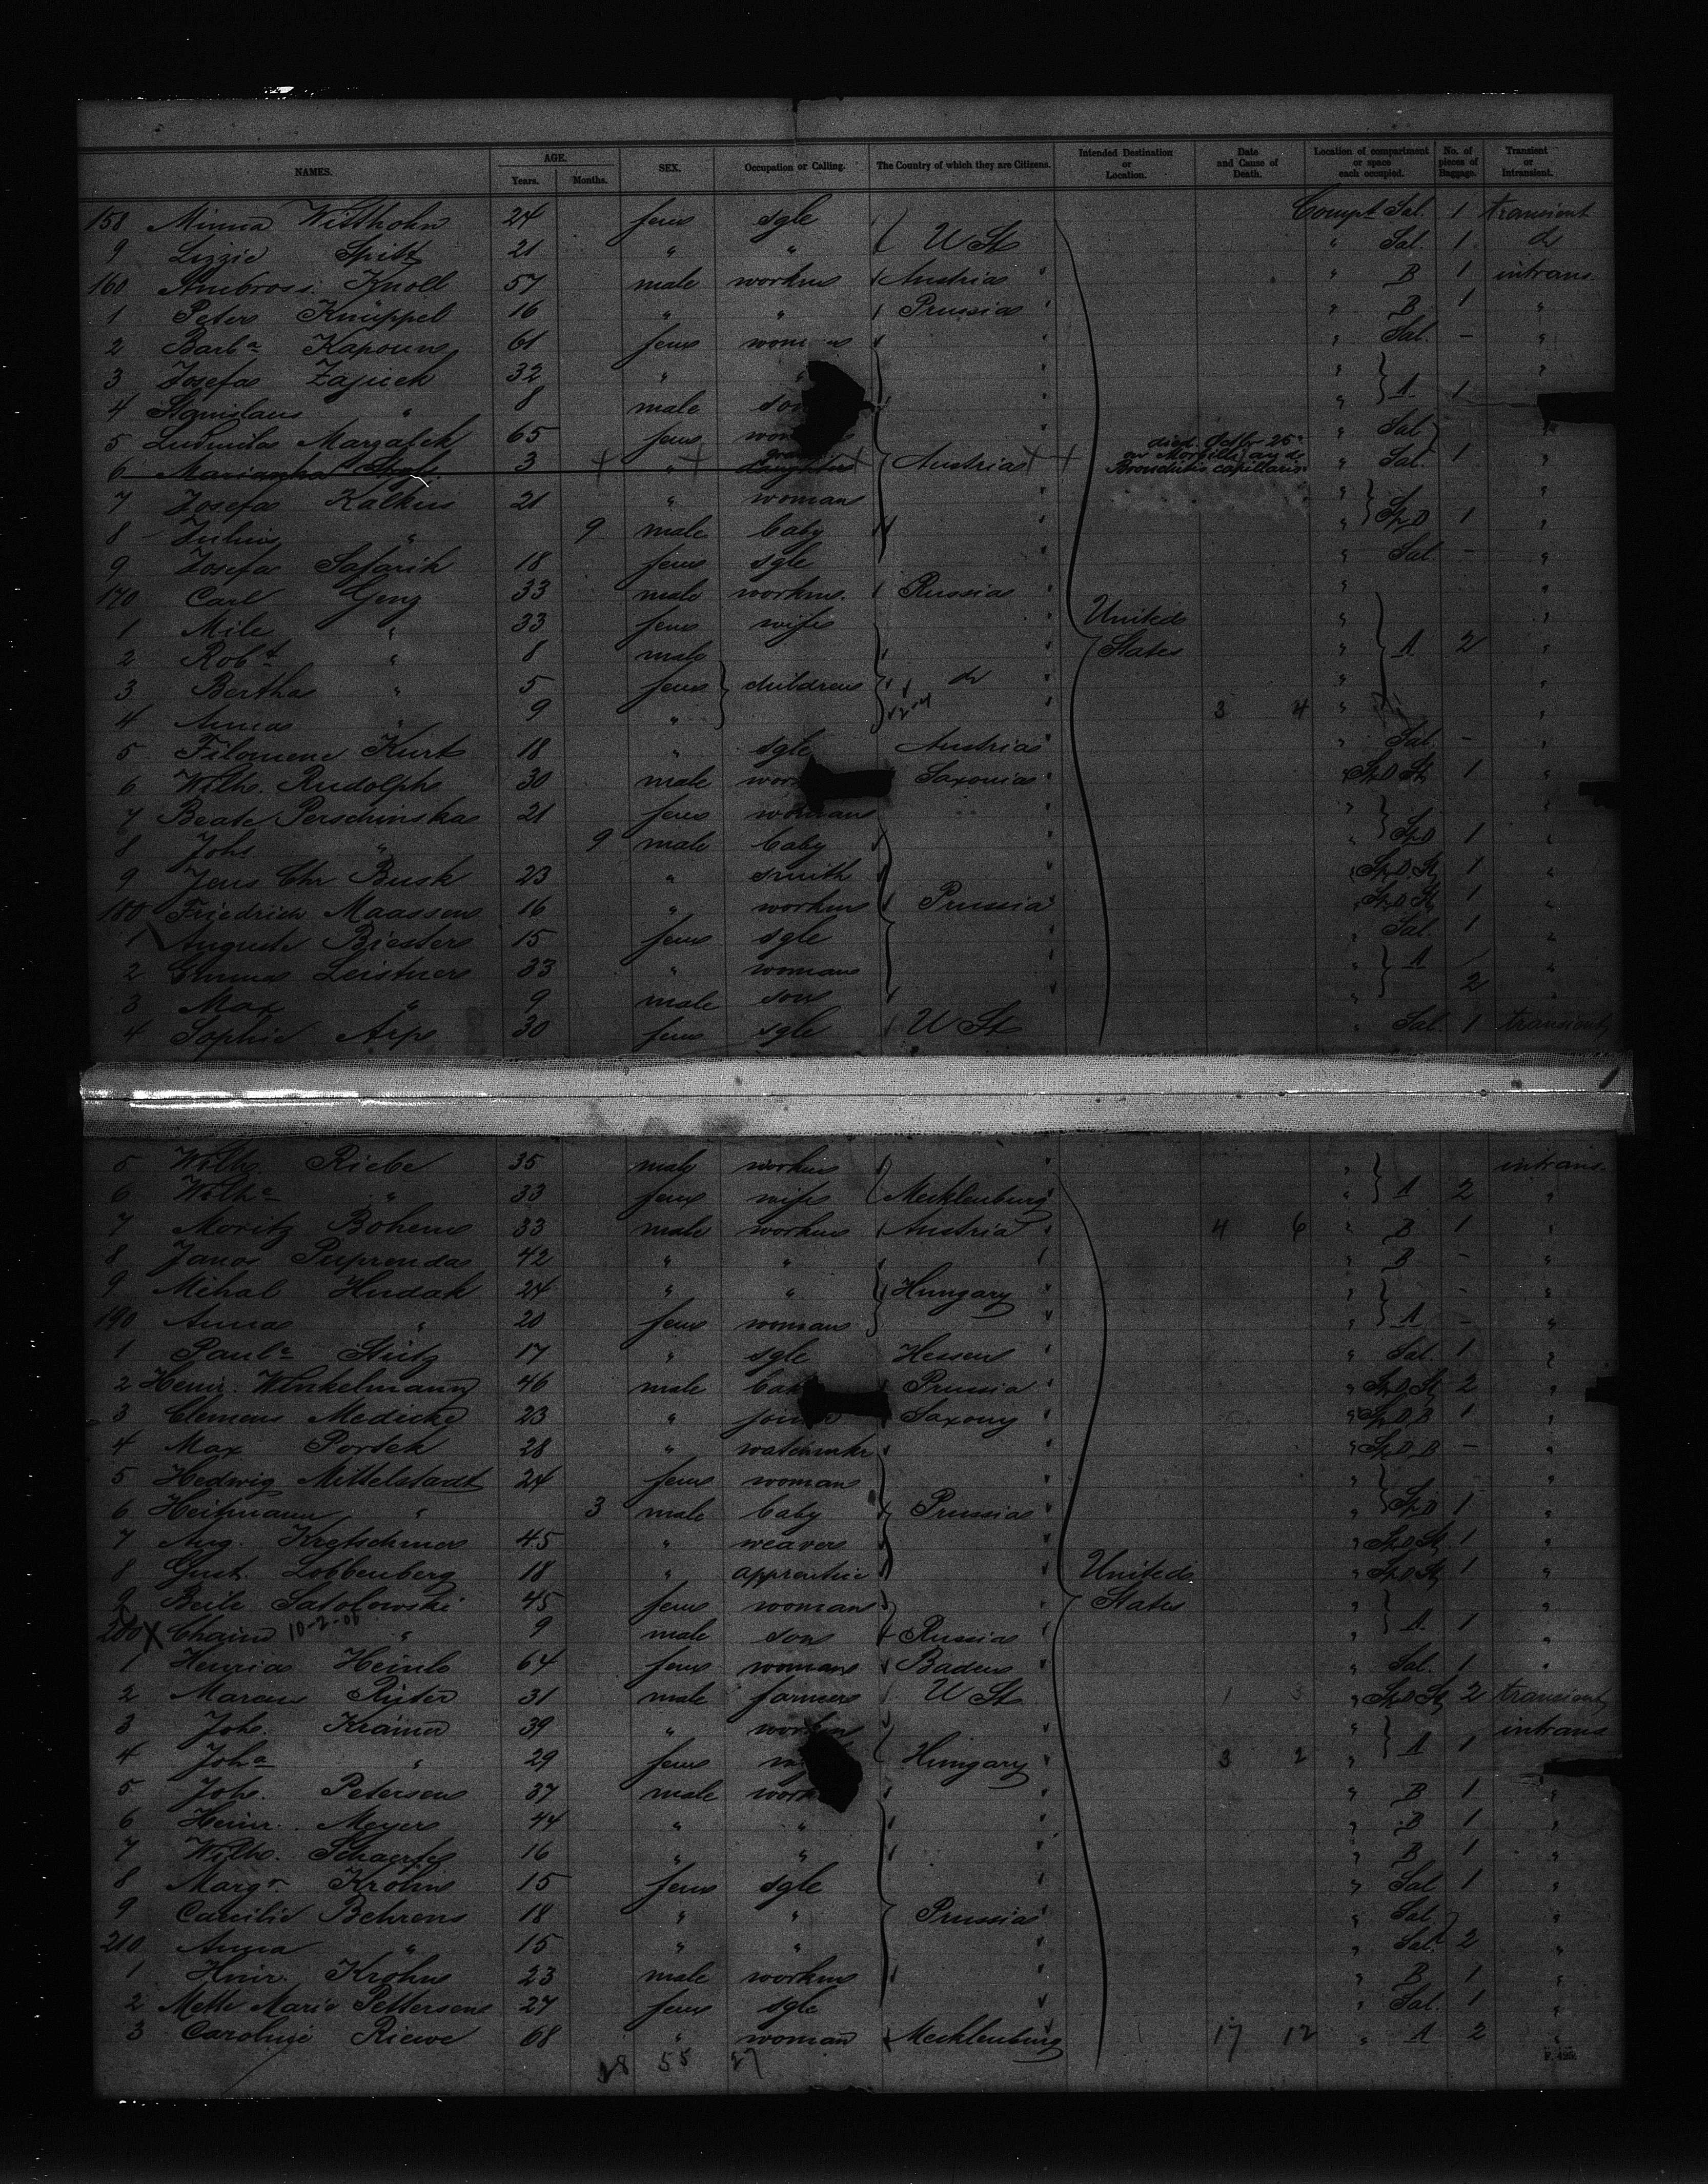 NAMES. AGE. Years. Months. SEX. Occupation or Calling. The Country of which they are Citizens. Intended Destination or Location. Date and Cause of Death. Location of compartment or space each occupied. No. of pieces of Baggage. Transient or Intransient.
158 Minna Witthohn 24 fem sgle Compt Sal. 1 transient
9 Lizzie Spitt 21 " " U St " Sal. 1 do
160 Ambros Knoll 57 male workm Austria " B 1 intrans.
1 Peter Knüppel 16 " " Prussia " B 1 "
2 Barba Kapoun 61 fem woman " Sal. - "
3 Josefa Zajicek 32 " " " "
4 Stanislaus " 8 male son " A 1
5 Ludmila 65 fem " Sal "
6 Marianka 3 " grand daughter Austria died Octbr 25 " Sal. 1 "
Bronchitis capillaris
7 Josefa Kalkus 21 " woman " "
8 Julius " 9 male baby " Sp D 1 "
9 Josefa Safarik 18 fem sgle " Sal - "
170 Carl Genz 33 male workm. Russia " "
1 Mile " 33 fem wife United " "
2 Robt " 8 male States " A 2 "
3 Bertha " 5 fem children do " "
4 Anna " 9 " 3 4 " "
5 Filomene Kurt 18 " sgle Austria " Sal - "
6 Wilh. Rudolph 30 male Saxonia " Sp D St 1 "
7 Beate Perschinska 21 fem woman "
8 Joh. " 9 male baby " Sp D 1 "
9 Jens Chr Busk 23 " smith " Sp D St 1 "
180 Friedrich Maassen 16 " workm Prussia " Sp D St 1 "
1 Auguste Biester 15 fem sgle " Sal. 1 "
2 Emma Leistner 33 " woman " A "
3 Max " 9 male son " 2 "
4 Sophie Arp 30 fem sgle U St " Sal. 1 transient
5 Wilh. Riebe 35 male workm " intrans.
6 Wilhe " 33 fem wife Mecklenburg " A 2 "
7 Moritz Bohem 33 male workm Austria 4 6 " B 1 "
8 Janos Puprenda 42 " " " B - "
9 Mihal Hudak 24 " " Hungary " - "
190 Anna " 20 fem woman " A - "
1 Paule Stütz 17 " sgle Hessen " Sal. 1 "
2 Heinr. Winkelmann 46 male Prussia " Sp D St 2 "
3 Clemens Medicke 23 " joiner Saxony " Sp D B 1 "
4 Max Portek 28 " watchmkr " Sp D B - "
5 Hedwig Mittelstadt 24 fem woman " "
6 Heitmann " 3 male baby Prussia " Sp D 1 "
7 Aug. Kretschmer 45 " weaver " Sp D St 1 "
8 Gust. Lobbenberg 18 " apprentice United " Sp D St 1 "
9 Beile Satolowski 45 fem woman States " "
200 X Chaim 10-2-06 " 9 male son Russia " A 1 "
1 Henria Heinle 64 fem woman Baden " Sal. 1 "
2 Marcus 31 male farmer U St 1 3 " Sp D St 2 transient
3 Joh. Krämer 39 " workm " intrans
4 Joha " 29 fem Hungary 3 2 " A 1 "
5 Joh. Petersen 37 male workm " B 1 "
6 Heinr. Meyer 44 " " " B 1 "
7 Wilh. Schaerfe 16 " " " B 1 "
8 Margr. Krohn 15 fem sgle " Sal 1 "
9 Caecilie Behrens 18 " " Prussia " Sal "
210 Anna " 15 " " " Sal. 2 "
1 Hnir. Krohn 23 male workm " B 1 "
2 Mette Marie Pettersen 27 fem sgle " Sal. 1 "
3 Caroline Riewe 68 " woman Mecklenburg 17 12 " A 2 "
55